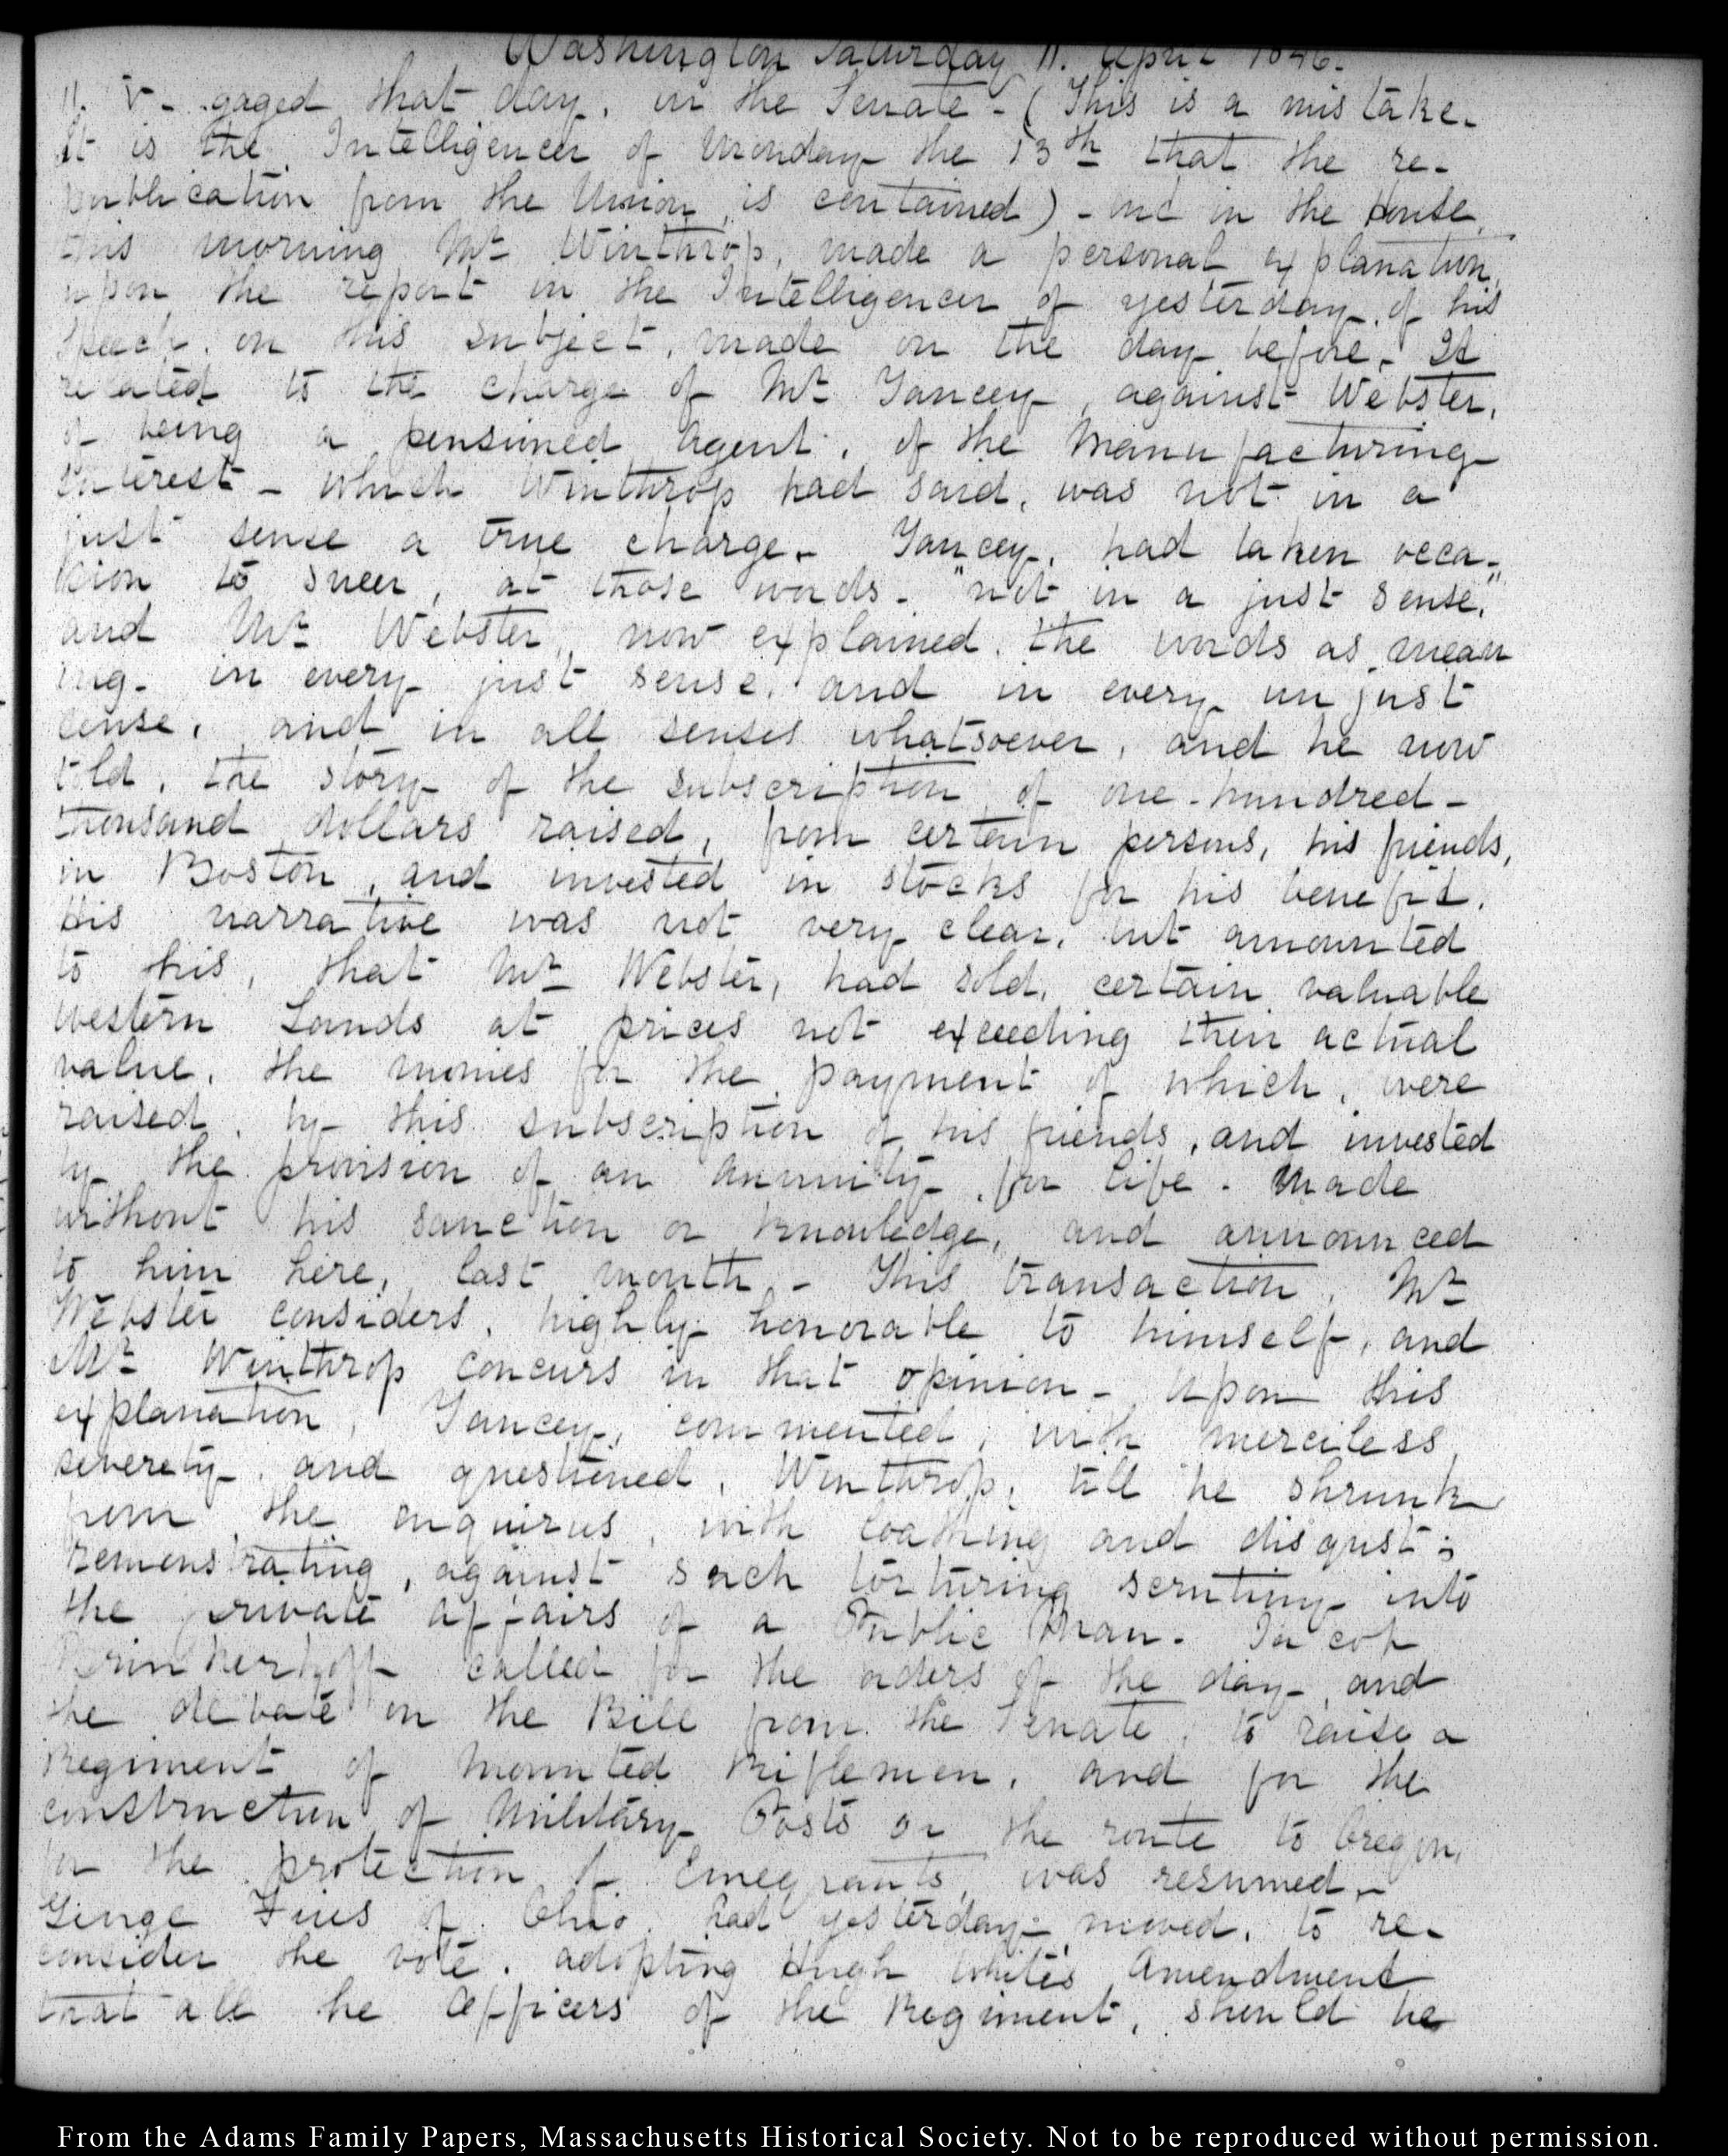 Washington Saturday 11. April 1846.
11. V - gaged that day, in the Senate - (This is a mistake.
It is the Intelligencer of Monday the 13th that the re-
publication from the Union, is contained) - and in the House,
this morning Mr Winthrop, made a personal explanation,
upon the report in the Intelligencer of yesterday, of his
speech, on this subject, made on the day before. It
related to the charge of Mr Yancey, against Webster,
of being a pensioned agent, of the Manufacturing
interest - which Winthrop had said, was not in a
just sense a true charge. Yancey, had taken occa-
sion to sneer, at those words - "not in a just sense,"
and Mr Webster, now explained, the words as mean
ing - in every just sense, and in every unjust
sense, and in all senses whatsoever, and he now
told, the story of the subscription, of one-hundred-
thousand dollars raised, from certain persons, his friends,
in Boston, and invested in stocks for his benefit.
His narrative was not very clear, but amounted
to this, that Mr Webster, had sold, certain valuable
western Lands at prices not exceeding their actual
value, the monies for the payment of which, were
raised, by this subscription of his friends, and invested
by the provision of an annuity, for life - Made
without his sanction or knowledge, and announced
to him here, last month. - This transaction, Mr
Webster considers, highly honorable to himself, and
Mr Winthrop concurs in that opinion - Upon this
explanation, Yancey, commented, with merciless
severity, and questioned, Winthrop, till he shrunk
from the enquiries, with loathing and disgust;
remonstrating, against such torturing scrutiny into
the private affairs of a Public Man. Jacob
Brinkerhoff called for the orders of the day, and
the debate on the Bill from the Senate, to raise a
Regiment of Mounted Riflemen, and for the
construction of Military Posts on the route to Oregon,
for the protection of Emegrants, was resumed.
George Fries of Ohio, had yesterday moved, to re-
consider the vote, adopting Hugh White's Amendment
that all the Officers of the Regiment, should be
From the Adams Family Papers, Massachusetts Historical Society. Not to be reproduced without permission.